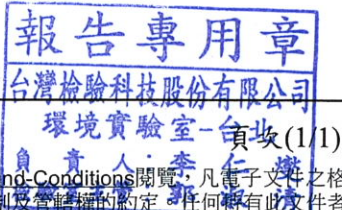 報告專用章
台灣檢驗科技股份有限公司
環境實驗室-台北
頁次(1/1)
負責人:李仁
nd-Conditions閱覽,凡電子文件之格
及管轄權的約定。任何持有此文件者